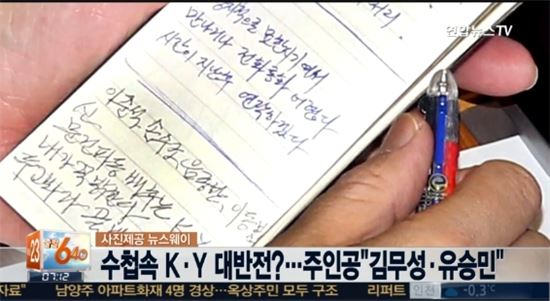 연합뉴스TV
만나거나 전화통화 어렵다
시간이 지난후 연락하겠다
이준석, 손수조, 음종환, 이동빈
신
문건파동 배후는
내가 꼭 밝힌다
두고봐라 곧
23
640
07:12
사진제공 뉴스웨이
수첩속 K·Y 대반전?…주인공"김무성·유승민"
자료" 남양주 아파트화재 4명 경상…옥상주민 모두 구조 리퍼트 인천 -0.3℃